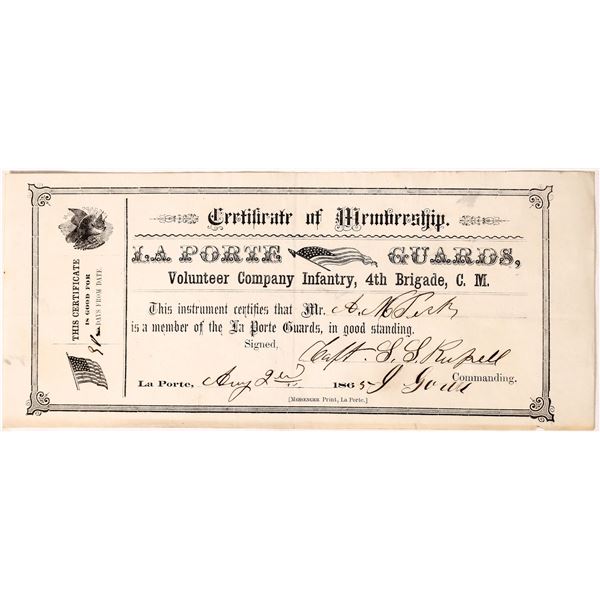 Certificate of Membership.
LA PORTE GUARDS,
Volunteer Company Infantry, 4th Brigade, C. M.
This instrument certifies that Mr. A. M.
is a member of the La Porte Guards, in good standing.
Signed,
Capt. S. S. Russell
Commanding.
La Porte, Aug 2nd 1865
[MESSENGER Print, La Porte.]
THIS CERTIFICATE
IS GOOD FOR
DAYS FROM DATE